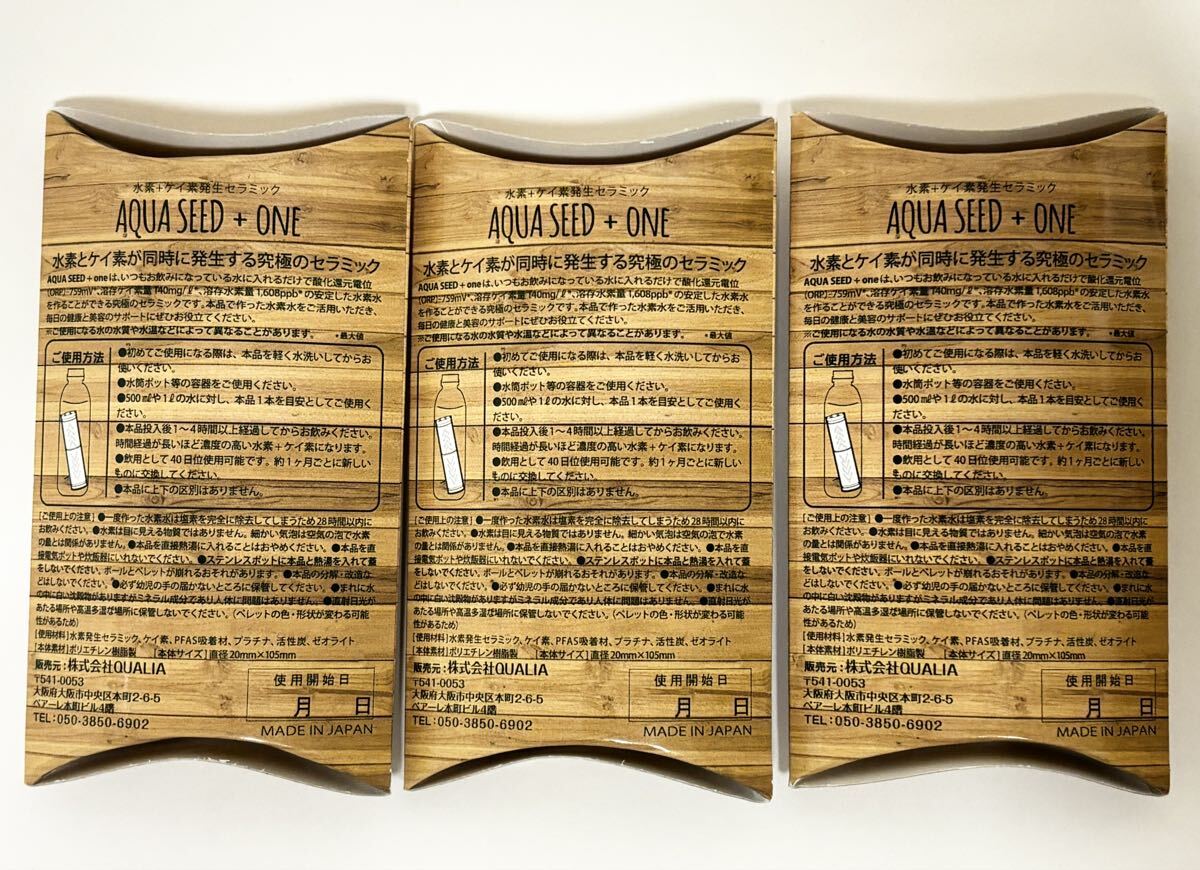 水素+ケイ素発生セラミック
AQUA SEED + ONE
水素とケイ素が同時に発生する究極のセラミック
AQUA SEED + oneは、いつもお飲みになっている水に入れるだけで酸化還元電位
(ORP)-759mV*、溶存ケイ素量140mg/ℓ*、溶存水素量1,608ppb*の安定した水素水
を作ることができる究極のセラミックです。本品で作った水素水をご活用いただき、
毎日の健康と美容のサポートにぜひお役立てください。
※ご使用になる水の水質や水温などによって異なることがあります。 *最大値
ご使用方法
●初めてご使用になる際は、本品を軽く水洗いしてからお
使いください。
●水筒ポット等の容器をご使用ください。
●500㎖や1ℓの水に対し、本品1本を目安としてご使用く
ださい。
●本品投入後1〜4時間以上経過してからお飲みください。
時間経過が長いほど濃度の高い水素+ケイ素になります。
●飲用として40日位使用可能です。約1ヶ月ごとに新しい
ものに交換してください。
●本品に上下の区別はありません。
[ご使用上の注意] ●一度作った水素水は塩素を完全に除去してしまうため28時間以内に
お飲みください。●水素は目に見える物質ではありません。細かい気泡は空気の泡で水素
の量とは関係がありません。●本品を直接熱湯に入れることはおやめください。●本品を直
接電気ポットや炊飯器にいれないでください。●ステンレスポットに本品と熱湯を入れて蓋
をしないでください。ボールとペレットが崩れるおそれがあります。●本品の分解・改造な
どはしないでください。●必ず幼児の手の届かないところに保管してください。●まれに水
の中に白い沈殿物がありますがミネラル成分であり人体に問題はありません。●直射日光が
あたる場所や高温多湿な場所に保管しないでください。(ペレットの色・形状が変わる可能
性があるため)
[使用材料] 水素発生セラミック、ケイ素、PFAS吸着材、プラチナ、活性炭、ゼオライト
[本体素材] ポリエチレン樹脂製 [本体サイズ] 直径20mm×105mm
販売元：株式会社QUALIA
〒541-0053
大阪府大阪市中央区本町2-6-5
ベアーレ本町ビル4階
TEL：050-3850-6902
使用開始日
月 日
MADE IN JAPAN
水素+ケイ素発生セラミック
AQUA SEED + ONE
水素とケイ素が同時に発生する究極のセラミック
AQUA SEED + oneは、いつもお飲みになっている水に入れるだけで酸化還元電位
(ORP)-759mV*、溶存ケイ素量140mg/ℓ*、溶存水素量1,608ppb*の安定した水素水
を作ることができる究極のセラミックです。本品で作った水素水をご活用いただき、
毎日の健康と美容のサポートにぜひお役立てください。
※ご使用になる水の水質や水温などによって異なることがあります。 *最大値
ご使用方法
●初めてご使用になる際は、本品を軽く水洗いしてからお
使いください。
●水筒ポット等の容器をご使用ください。
●500㎖や1ℓの水に対し、本品1本を目安としてご使用く
ださい。
●本品投入後1〜4時間以上経過してからお飲みください。
時間経過が長いほど濃度の高い水素+ケイ素になります。
●飲用として40日位使用可能です。約1ヶ月ごとに新しい
ものに交換してください。
●本品に上下の区別はありません。
[ご使用上の注意] ●一度作った水素水は塩素を完全に除去してしまうため28時間以内に
お飲みください。●水素は目に見える物質ではありません。細かい気泡は空気の泡で水素
の量とは関係がありません。●本品を直接熱湯に入れることはおやめください。●本品を直
接電気ポットや炊飯器にいれないでください。●ステンレスポットに本品と熱湯を入れて蓋
をしないでください。ボールとペレットが崩れるおそれがあります。●本品の分解・改造な
どはしないでください。●必ず幼児の手の届かないところに保管してください。●まれに水
の中に白い沈殿物がありますがミネラル成分であり人体に問題はありません。●直射日光が
あたる場所や高温多湿な場所に保管しないでください。(ペレットの色・形状が変わる可能
性があるため)
[使用材料] 水素発生セラミック、ケイ素、PFAS吸着材、プラチナ、活性炭、ゼオライト
[本体素材] ポリエチレン樹脂製 [本体サイズ] 直径20mm×105mm
販売元：株式会社QUALIA
〒541-0053
大阪府大阪市中央区本町2-6-5
ベアーレ本町ビル4階
TEL：050-3850-6902
使用開始日
月 日
MADE IN JAPAN
水素+ケイ素発生セラミック
AQUA SEED + ONE
水素とケイ素が同時に発生する究極のセラミック
AQUA SEED + oneは、いつもお飲みになっている水に入れるだけで酸化還元電位
(ORP)-759mV*、溶存ケイ素量140mg/ℓ*、溶存水素量1,608ppb*の安定した水素水
を作ることができる究極のセラミックです。本品で作った水素水をご活用いただき、
毎日の健康と美容のサポートにぜひお役立てください。
※ご使用になる水の水質や水温などによって異なることがあります。 *最大値
ご使用方法
●初めてご使用になる際は、本品を軽く水洗いしてからお
使いください。
●水筒ポット等の容器をご使用ください。
●500㎖や1ℓの水に対し、本品1本を目安としてご使用く
ださい。
●本品投入後1〜4時間以上経過してからお飲みください。
時間経過が長いほど濃度の高い水素+ケイ素になります。
●飲用として40日位使用可能です。約1ヶ月ごとに新しい
ものに交換してください。
●本品に上下の区別はありません。
[ご使用上の注意] ●一度作った水素水は塩素を完全に除去してしまうため28時間以内に
お飲みください。●水素は目に見える物質ではありません。細かい気泡は空気の泡で水素
の量とは関係がありません。●本品を直接熱湯に入れることはおやめください。●本品を直
接電気ポットや炊飯器にいれないでください。●ステンレスポットに本品と熱湯を入れて蓋
をしないでください。ボールとペレットが崩れるおそれがあります。●本品の分解・改造な
どはしないでください。●必ず幼児の手の届かないところに保管してください。●まれに水
の中に白い沈殿物がありますがミネラル成分であり人体に問題はありません。●直射日光が
あたる場所や高温多湿な場所に保管しないでください。(ペレットの色・形状が変わる可能
性があるため)
[使用材料] 水素発生セラミック、ケイ素、PFAS吸着材、プラチナ、活性炭、ゼオライト
[本体素材] ポリエチレン樹脂製 [本体サイズ] 直径20mm×105mm
販売元：株式会社QUALIA
〒541-0053
大阪府大阪市中央区本町2-6-5
ベアーレ本町ビル4階
TEL：050-3850-6902
使用開始日
月 日
MADE IN JAPAN